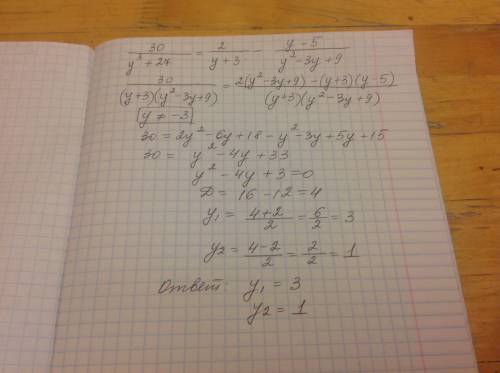 30/(y³+27) = 2/(y+3) - (y-5)/(y²-3y+9)
30/((y+3)(y²-3y+9)) = (2(y²-3y+9)-(y+3)(y-5))/((y+3)(y²-3y+9))
y ≠ -3
30 = 2y²-6y+18-y²-3y+5y+15
30 = y²-4y+33
y²-4y+3=0
D = 16-12=4
y₁ = (4+2)/2 = 6/2 = 3
y2 = (4-2)/2 = 2/2 = 1
Ответ: y₁ = 3
y2 = 1